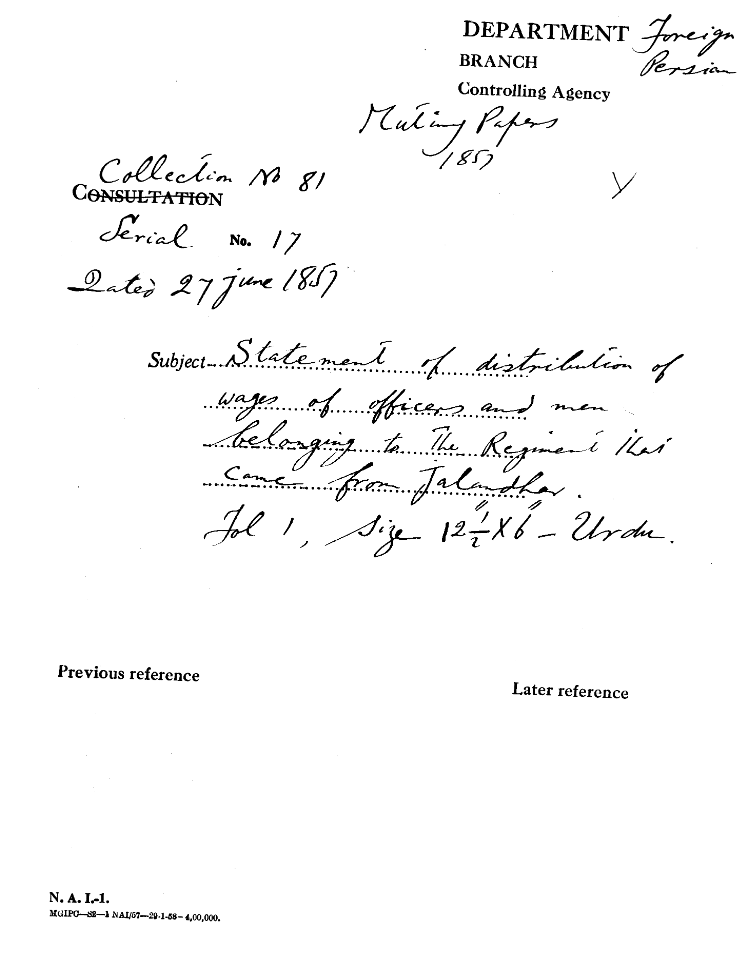 DEPARTMENT Foreign
BRANCH Persian
Controlling Agency
Mutiny Papers
1857
Collection No 81
CONSULTATION
Serial No. 17
Dated 27 June 1857
Subject Statement of distribution of
wages of officers and men
belonging to the Regiment that
came from Jalandhar.
Fol 1, Size 12½" X 6" – Urdu.
Previous reference
Later reference
N. A. I.-1.
MGIPC—S2—1 NAI/57—29-1-58—4,00,000.